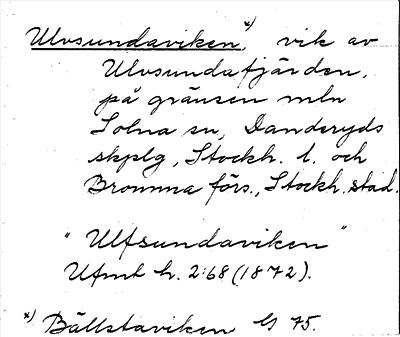 Ulvsundaviken, *) vik av
Ulvsundafjärden,
på gränsen mln
Solna sn, Danderyds
skplg, Stockh. l. och
Bromma förs., Stockh. stad.
"Ulfsundaviken"
Ufmt h. 2:68 (1872).
*) Bällstaviken 75.